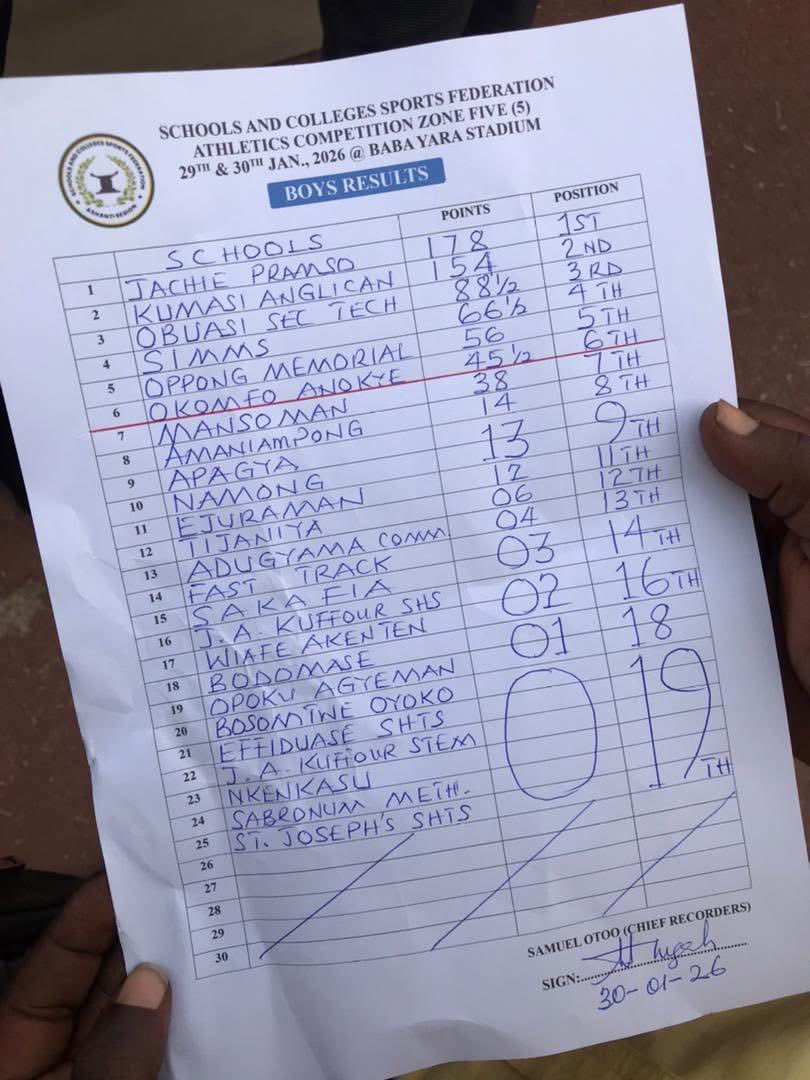 SCHOOLS AND COLLEGES SPORTS FEDERATION
ASHANTI REGION
SCHOOLS AND COLLEGES SPORTS FEDERATION
ATHLETICS COMPETITION ZONE FIVE (5)
29TH & 30TH JAN., 2026 @ BABA YARA STADIUM
BOYS RESULTS
SCHOOLS POINTS POSITION
1 JACHIE PRAMSO 178 1ST
2 KUMASI ANGLICAN 154 2ND
3 OBUASI SEC TECH 88½ 3RD
4 SIMMS 66½ 4TH
5 OPPONG MEMORIAL 56 5TH
6 OKOMFO ANOKYE 45½ 6TH
7 MANSOMAN 38 7TH
8 AMANIAMPONG 14 8TH
9 APAGYA 13 9TH
10 NAMONG
11 EJURAMAN 12 11TH
12 TIJANIYA 06 12TH
13 ADUGYAMA COMM. 04 13TH
14 FAST TRACK 03 14TH
15 SAKAFIA
16 J.A. KUFFOUR SHS 02 16TH
17 WIAFE AKENTEN
18 BODOMASE 01 18
19 OPOKU AGYEMAN 0 19TH
20 BOSOMTWE OYOKO
21 EFFIDUASE SHTS
22 J.A. KUFFOUR STEM
23 NKENKASU
24 SABRONUM METH.
25 ST. JOSEPH'S SHTS
26
27
28
29
30
SAMUEL OTOO (CHIEF RECORDERS)
SIGN:
30-01-26